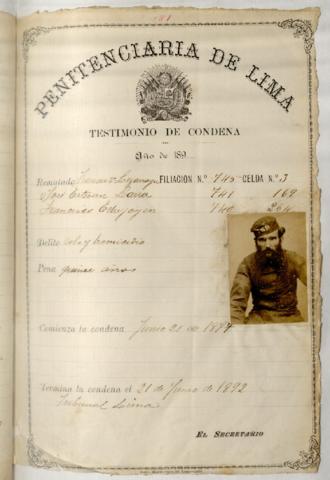 181
PENITENCIARIA DE LIMA
TESTIMONIO DE CONDENA
Año de 189
Rematado FILIACION N.° 745 - CELDA N.° 3
José Lara 741 169
Francisco 740 264
Delito y homicidio
Pena quince años
Comienza la condena Junio 21 de 1877
Termina la condena el 21 de Junio de 1892
Tribunal Lima
EL SECRETARIO